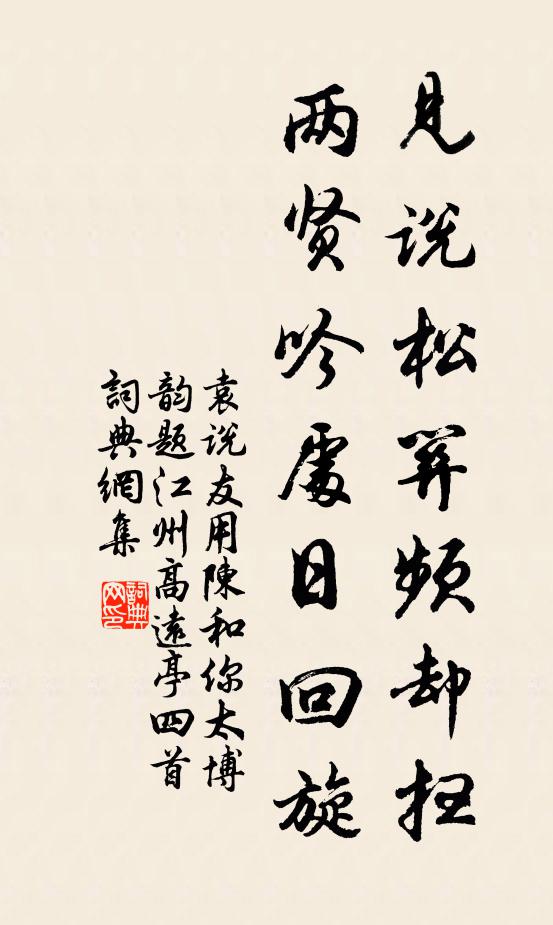 见说松關频却扫
两贤吟處日回旋
袁说友用陳和你太博
韵题江州高遠亭四首
詞典網集
詞典网印